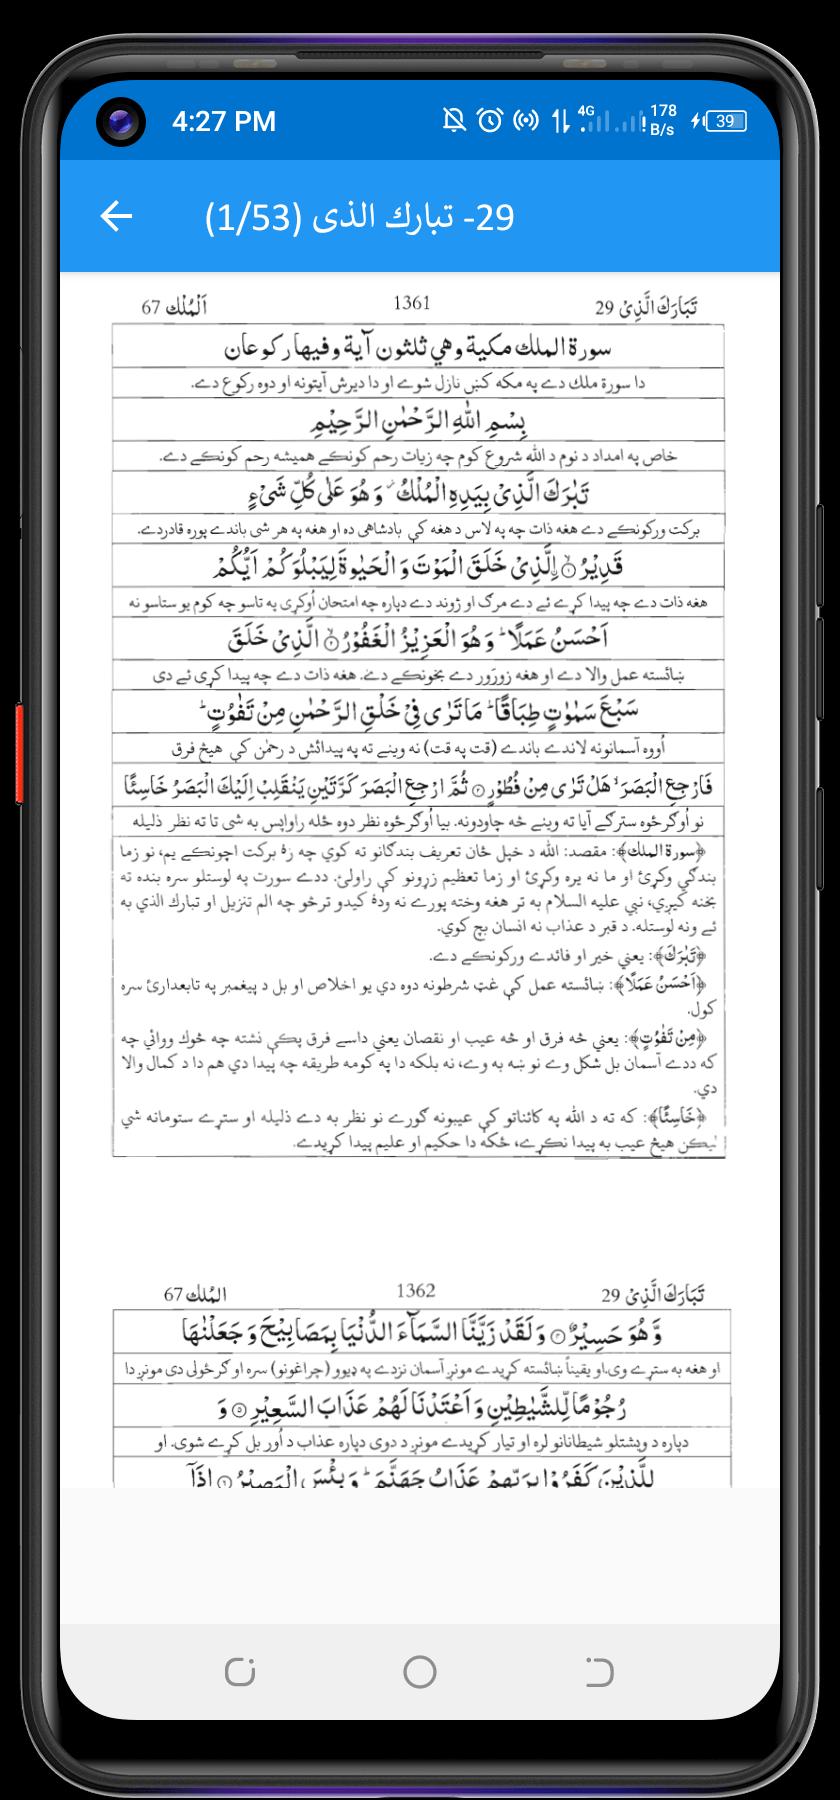 4:27 PM
4G
178 B/s
39
29- تبارك الذى (1/53)
تَبَارَكَ الَّذِيْ 29 1361 اَلْمُلْك 67
سورة الملك مكية وهي ثلثون آية وفيها ركوعان
دا سورة ملك دے په مكه كښې نازل شوے او دا ديرش آيتونه او دوه ركوع دے.
بِسْمِ اللّٰهِ الرَّحْمٰنِ الرَّحِيْمِ
خاص په امداد د نوم د الله شروع كوم چه زيات رحم كونكے هميشه رحم كونكے دے.
تَبٰرَكَ الَّذِيْ بِيَدِهِ الْمُلْكُ ۡ وَ هُوَ عَلٰى كُلِّ شَيْءٍ
بركت وركونكے دے هغه ذات چه په لاس د هغه كې بادشاهى ده او هغه په هر شى باندے پوره قادردے.
قَدِيْرُ ۙ﴿۱﴾ اۨلَّذِيْ خَلَقَ الْمَوْتَ وَ الْحَيٰوةَ لِيَبْلُوَكُمْ اَيُّكُمْ
هغه ذات دے چه پيدا كړے ئے دے مرګ او ژوند دے دپاره چه امتحان اُوكړى په تاسو چه كوم يو ستاسو نه
اَحْسَنُ عَمَلًا ؕ وَ هُوَ الْعَزِيْزُ الْغَفُوْرُ ۙ﴿۲﴾ الَّذِيْ خَلَقَ
ښائسته عمل والا دے او هغه زورَور دے بخونكے دے. هغه ذات دے چه پيدا كړى ئے دى
سَبْعَ سَمٰوٰتٍ طِبَاقًا ؕ مَا تَرٰى فِيْ خَلْقِ الرَّحْمٰنِ مِنْ تَفٰوُتٍ ؕ
اُووه آسمانونه لاندے باندے (قت په قت) نه وينے ته په پيدائش د رحمٰن كې هيڅ فرق
فَارْجِعِ الْبَصَرَ ۙ هَلْ تَرٰى مِنْ فُطُوْرٍ ﴿۳﴾ ثُمَّ ارْجِعِ الْبَصَرَ كَرَّتَيْنِ يَنْقَلِبْ اِلَيْكَ الْبَصَرُ خَاسِئًا
نو اُوګرځوه سترګے آيا ته وينے څه چاودونه. بيا اُوګرځوه نظر دوه ځله راواپس به شى تا ته نظر ذليله
﴿سورة الملك﴾: مقصد: الله د خپل ځان تعريف بندګانو ته كوي چه زۀ بركت اچونكے يم، نو زما
بندګي وكړئ او ما نه يره وكړئ او زما تعظيم زړونو كې راولئ. ددے سورت په لوستلو سره بنده ته
بخنه كيږي، نبي عليه السلام به تر هغه وخته پورے نه ودۀ كيدو ترڅو چه الم تنزيل او تبارك الذي به
ئے ونه لوستله. د قبر د عذاب نه انسان بچ كوي.
﴿تَبٰرَكَ﴾: يعني خير او فائدے وركونكے دے.
﴿اَحْسَنُ عَمَلًا﴾: ښائسته عمل كې غټ شرطونه دوه دي يو اخلاص او بل د پيغمبر په تابعدارئ سره
كول.
﴿مِنْ تَفٰوُتٍ﴾: يعني څه فرق او څه عيب او نقصان يعني داسے فرق پكې نشته چه څوك ووائي چه
كه ددے آسمان بل شكل وے نو ښه به وے، نه بلكه دا په كومه طريقه چه پيدا دي هم دا د كمال والا
دي.
﴿خَاسِئًا﴾: كه ته د الله په كائناتو كې عيبونه ګورے نو نظر به دے ذليله او سترے ستومانه شي
ليكن هيڅ عيب به پيدا نكړے، ځكه دا حكيم او عليم پيدا كړيدے.
تَبَارَكَ الَّذِيْ 29 1362 المُلك 67
وَّ هُوَ حَسِيْرٌ ﴿۴﴾ وَ لَقَدْ زَيَّنَّا السَّمَآءَ الدُّنْيَا بِمَصَابِيْحَ وَ جَعَلْنٰهَا
او هغه به سترے وى.او يقيناً ښائسته كړيدے مونږ آسمان نزدے په ډيوو (چراغونو) سره او ګرځولى دى مونږ دا
رُجُوْمًا لِّلشَّيٰطِيْنِ وَ اَعْتَدْنَا لَهُمْ عَذَابَ السَّعِيْرِ ﴿۵﴾ وَ
دپاره د ويشتلو شيطانانو لره او تيار كړيدے مونږ د دوى دپاره عذاب د اُور بل كړے شوى. او
لِلَّذِيْنَ كَفَرُوْا بِرَبِّهِمْ عَذَابُ جَهَنَّمَ ؕ وَ بِئْسَ الْمَصِيْرُ ﴿۶﴾ اِذَاۤ